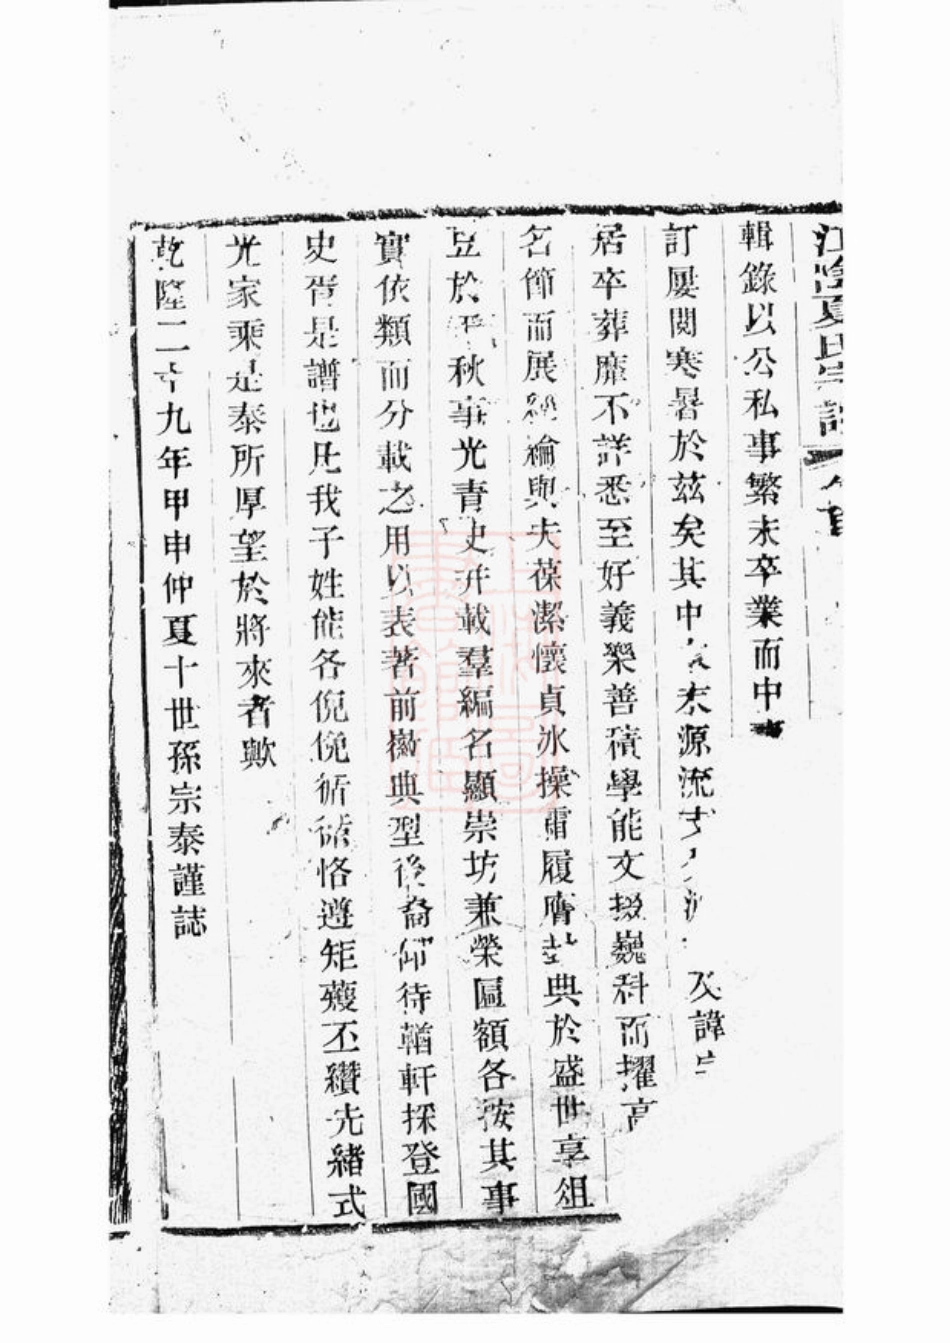 江陰夏氏宗譜 卷首
輯錄以公私事繁未卒業而中
訂屢閱寒暑於茲矣其中 末源流支 派 及諱
居卒葬靡不詳悉至好義樂善積學能文掇巍科而擢高
名節而展經綸與夫葆潔懷貞冰操霜履膺 典於盛世享俎
豆於千秋事光青史并載羣編名顯崇坊兼榮匾額各按其事
實依類而分載之用以表著前徽典型後裔仰待輶軒採登國
史胥是譜也凡我子姓能各俛俛循循恪遵矩矱丕纘先緒式
光家乘是泰所厚望於將來者歟
乾隆二十九年甲申仲夏十世孫宗泰謹誌